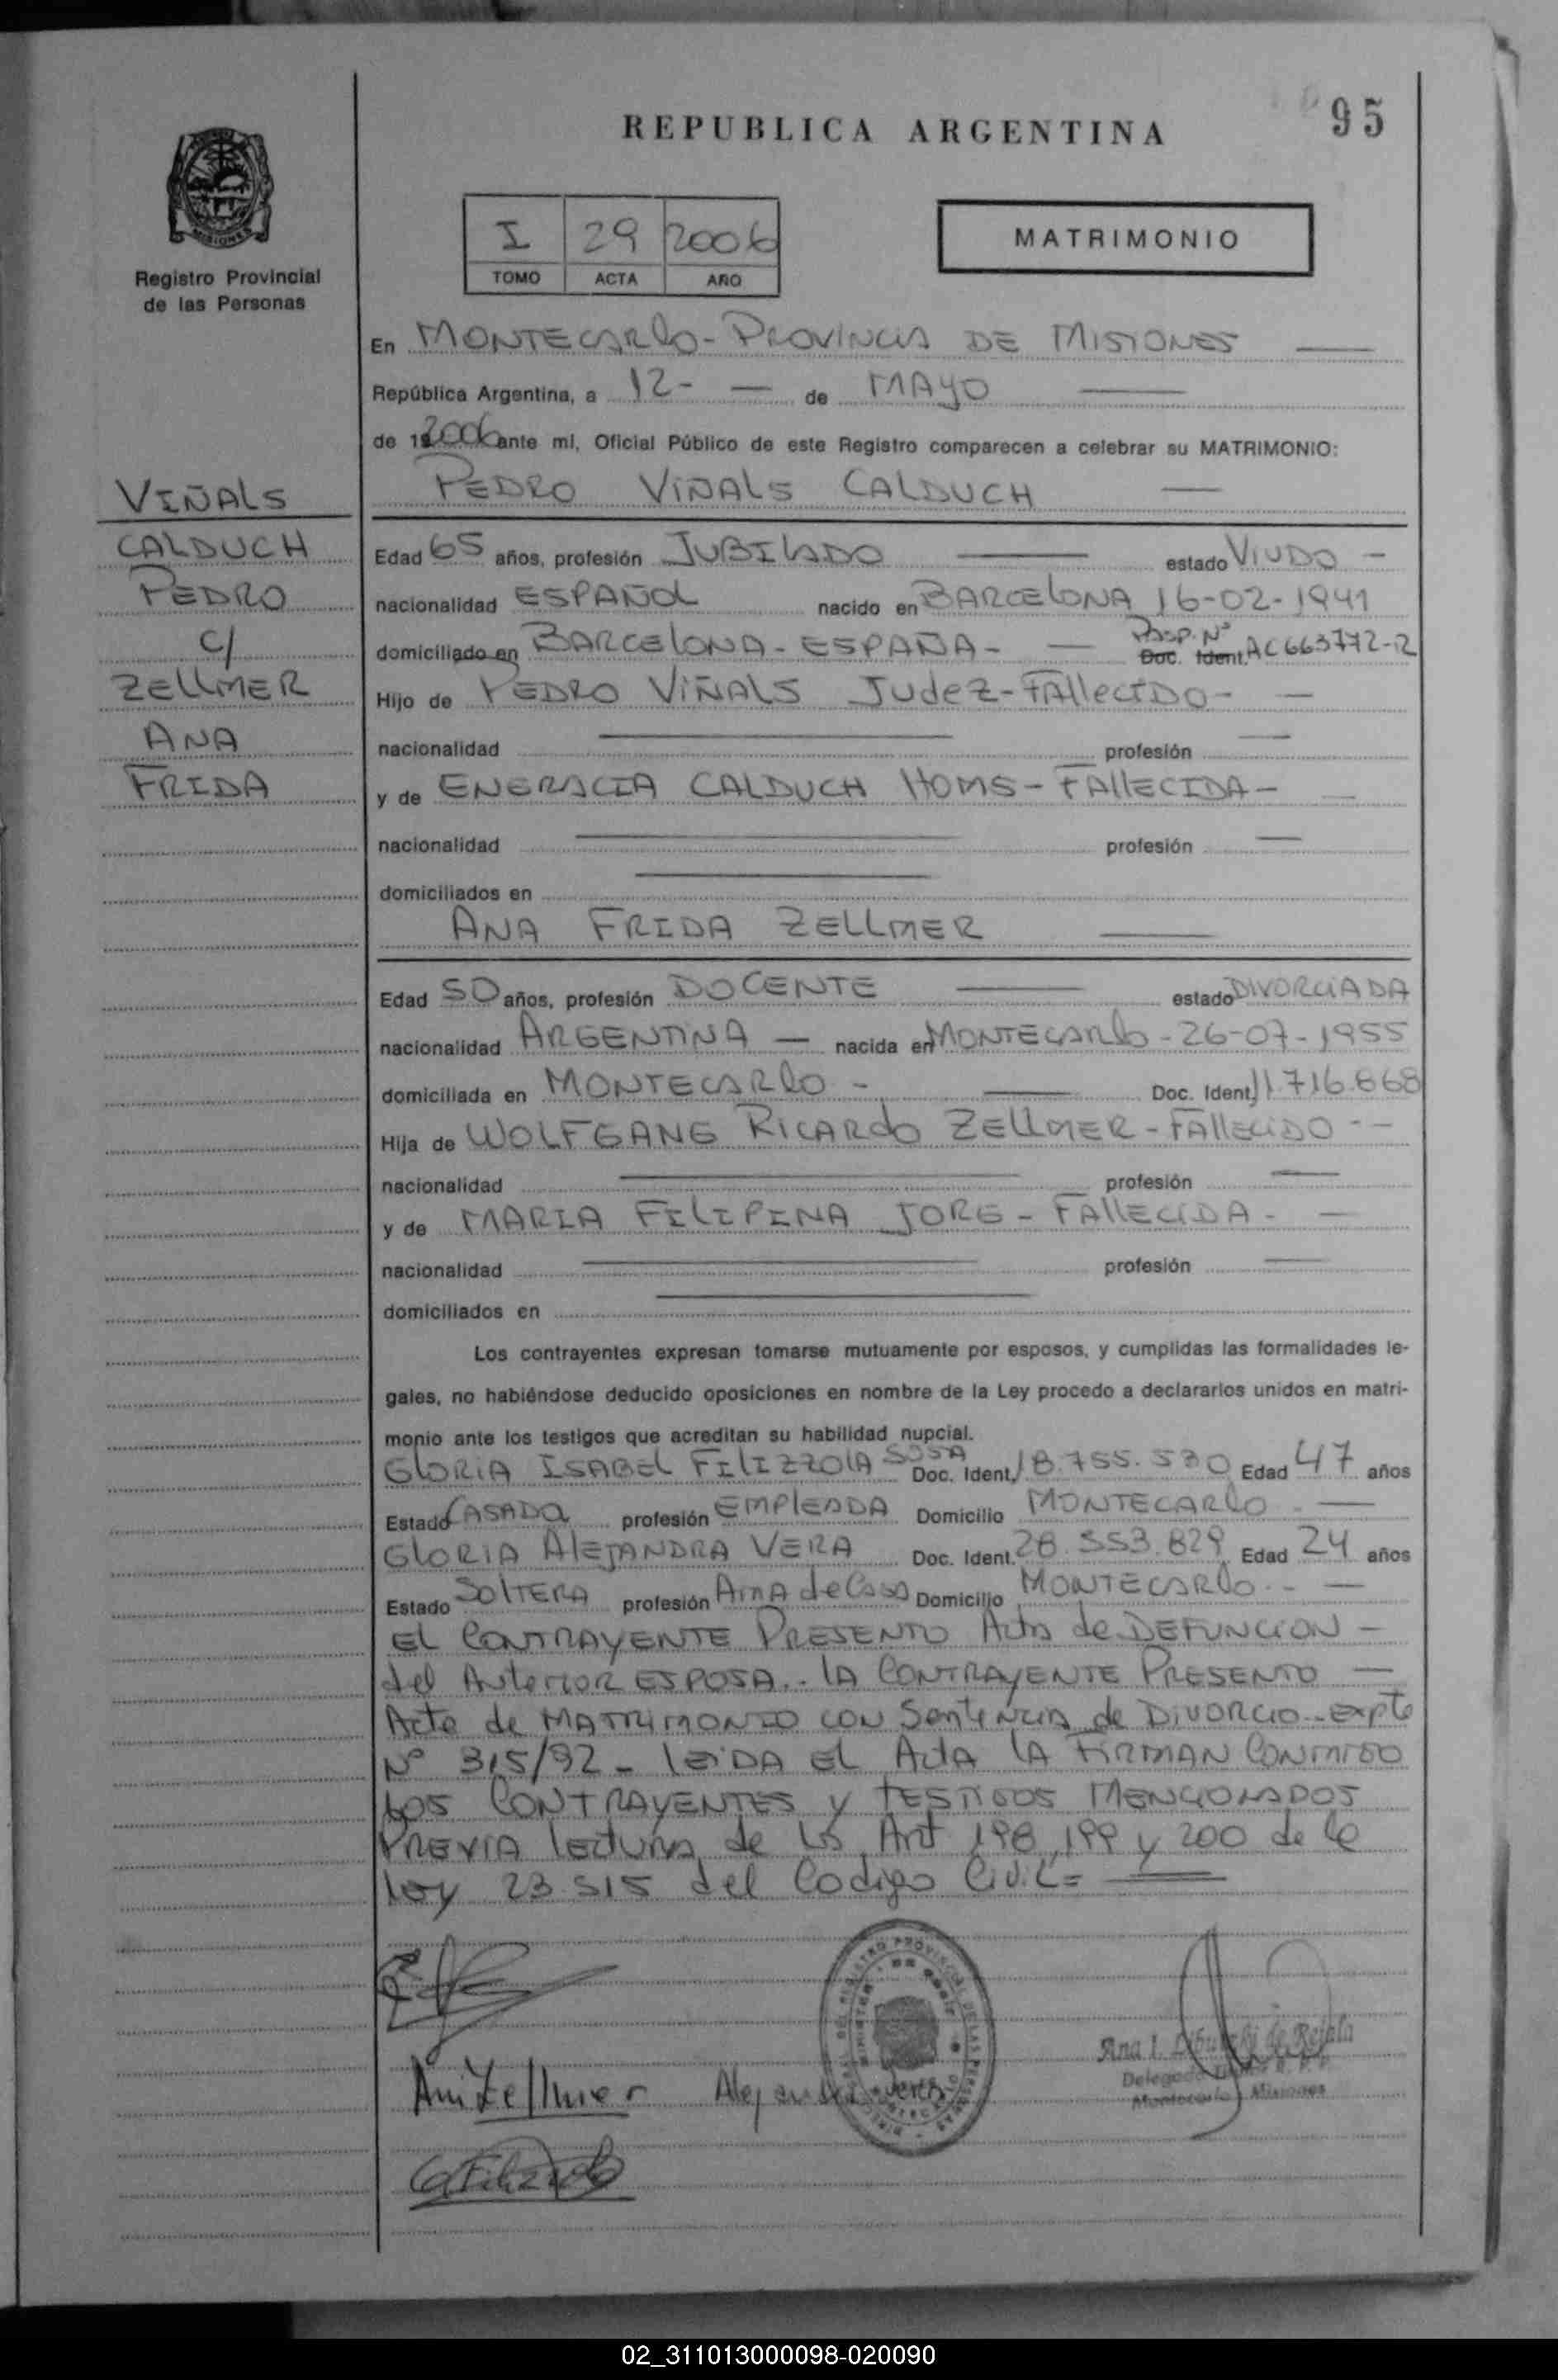 REPUBLICA ARGENTINA
95
MISIONES
Registro Provincial
de las Personas
I 29 2006
TOMO ACTA AÑO
MATRIMONIO
En MONTECARLO - PROVINCIA DE MISIONES
República Argentina, a 12 - de MAYO
de 2006 ante mi, Oficial Público de este Registro comparecen a celebrar su MATRIMONIO:
PEDRO VIÑALS CALDUCH
VIÑALS
CALDUCH
PEDRO
c/
ZELLMER
ANA
FRIDA
Edad 65 años, profesión JUBILADO estado VIUDO -
nacionalidad ESPAÑOL nacido en BARCELONA 16-02-1941
domiciliado en BARCELONA - ESPAÑA - Pasp. Nº Doc. Ident. AC663772-R
Hijo de PEDRO VIÑALS Judez - FAllecIDO -
nacionalidad profesión
y de ENGRACIA CALDUCH HOMS - FAllECIDA -
nacionalidad profesión
domiciliados en
ANA FRIDA ZELLMER
Edad 50 años, profesión DOCENTE estado DIVORCIADA
nacionalidad ARGENTINA - nacida en MONTECARLO - 26-07-1955
domiciliada en MONTECARLO - Doc. Ident. 11.716.668
Hija de WOLFGANG RICARDO ZELLMER - FAllECIDO - -
nacionalidad profesión
y de MARIA FILIPINA JORG - FAllECIDA -
nacionalidad profesión
domiciliados en
Los contrayentes expresan tomarse mutuamente por esposos, y cumplidas las formalidades le-
gales, no habiéndose deducido oposiciones en nombre de la Ley procedo a declararlos unidos en matri-
monio ante los testigos que acreditan su habilidad nupcial.
GLORIA ISABEL FILIZZOLA SOSA Doc. Ident. 18.755.530 Edad 47 años
Estado CASADA profesión EMPLEADA Domicilio MONTECARLO -
GLORIA AlEJANDRA VERA Doc. Ident. 28.553.829 Edad 24 años
Estado SOLTERA profesión AmA de Casa Domicilio MONTECARLO - -
EL CONTRAYENTE PRESENTO Acta de DEFUNCION -
del Anterior ESPOSA.. LA CONTRAYENTE PRESENTO -
Acta de MATRIMONIO CON Sentencia de DIVORCIO.. Expte
Nº 315/92 - LEIDA EL Acta LA FIRMAN CONMIGO
LOS CONTRAYENTES y TESTIGOS MENCIONADOS
PREVIA lectura de los Art 198, 199 y 200 de la
ley 23.515 del Codigo Civil =
Ana I. de Rejala
Delegada
Montecarlo Misiones
Ani Zellmer Alejandra Vera
02_311013000098-020090